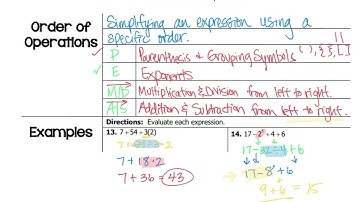 Order of Operations
Simplifying an expression using a specific order.
P Parenthesis & Grouping Symbols ( ), { }, [ ]
| |
E Exponents
M/D Multiplication & Division from left to right.
A/S Addition & Subtraction from left to right.
Examples
Directions: Evaluate each expression.
13. 7 + 54 ÷ 3(2)
7 + 18 · 2
7 + 36 = 43
14. 17 – 2⁵ ÷ 4 + 6
17 - 32 ÷ 4 + 6
17 - 8 + 6
9 + 6 = 15